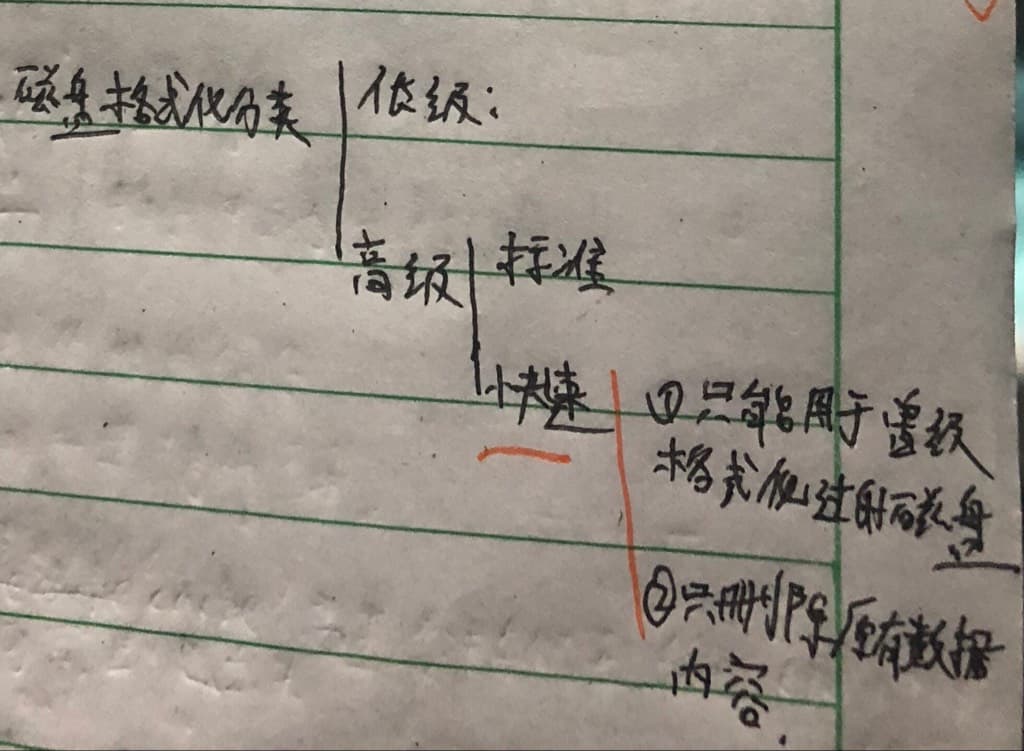 磁盘格式化分类
低级:
高级
标准
快速
①只能用于曾级
格式化过的磁盘
②只删除原有数据
内容.